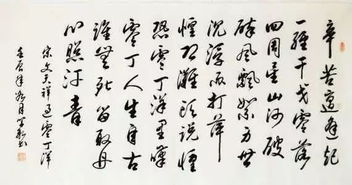 辛苦遭逢起
一經干戈零落
四周星山河破
碎風飄絮身世
沉浮雨打萍
惶恐灘頭說惶
恐零丁洋里嘆
零丁人生自古
誰無死留取丹
心照汗青
宋文天祥過零丁洋
壬辰年 月 書